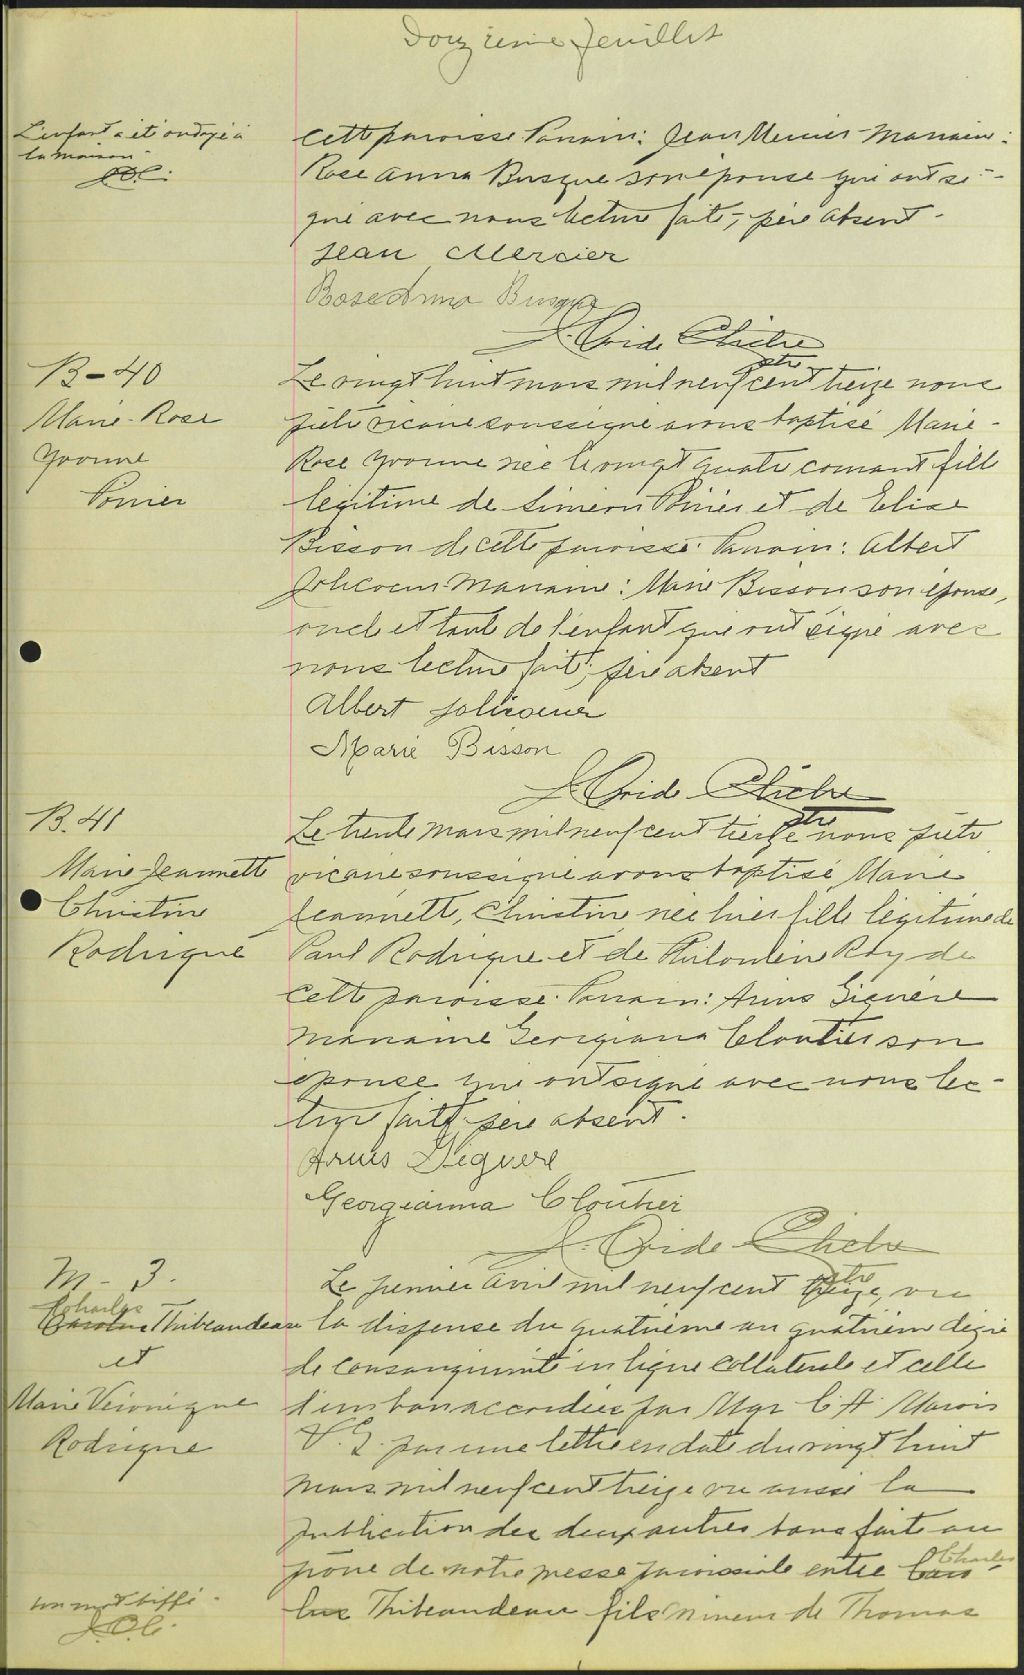 Douzième feuillet
L'enfant a été ondoyé à
la maison
J.O.C.
cette paroisse Parrain: Jean Mercier Marraine:
Rose Anna Busque son épouse qui ont si-
gné avec nous lecture faite, père absent.
Jean Mercier
Rose Anna Busque
J. Ovide Cliche
ptre
B-40
Marie-Rose
Yvonne
Poirier
Le vingt huit mars mil neuf cent treize nous
prêtre vicaire soussigné avons baptisé Marie-
Rose Yvonne née le vingt quatre courant fille
légitime de Siméon Poirier et de Elise
Bisson de cette paroisse. Parrain: Albert
Jolicoeur Marraine: Marie Bisson son épouse,
oncle et tante de l'enfant qui ont signé avec
nous lecture faite, père absent
Albert Jolicoeur
Marie Bisson
J. Ovide Cliche
ptre
B.41
Marie-Jeannette
Christine
Rodrigue
Le trente mars mil neuf cent treize nous prêtre
vicaire soussigné avons baptisé Marie
Jeannette, Christine née hier fille légitime de
Paul Rodrigue et de Philomène Roy de
cette paroisse. Parrain: Giguère
marraine Georgiana Cloutier son
épouse qui ont signé avec nous lec-
ture faite, père absent.
Giguere
Georgianna Cloutier
J. Ovide Cliche
ptre
M-3.
Charles
Thibeaudeau
et
Marie Véronique
Rodrigue
Le premier Avril mil neuf cent treize, vu
la dispense du quatrième au quatrième degré
de consanguinité en ligne collatérale et celle
d'un ban accordées par Mgr C A Marois
V.G. par une lettre en date du vingt huit
mars mil neuf cent treize vu aussi la
publication des deux autres bans faite au
prône de notre messe paroissiale entre Charles
Thibeaudeau fils mineur de Thomas
un mot biffé.
J.O.C.